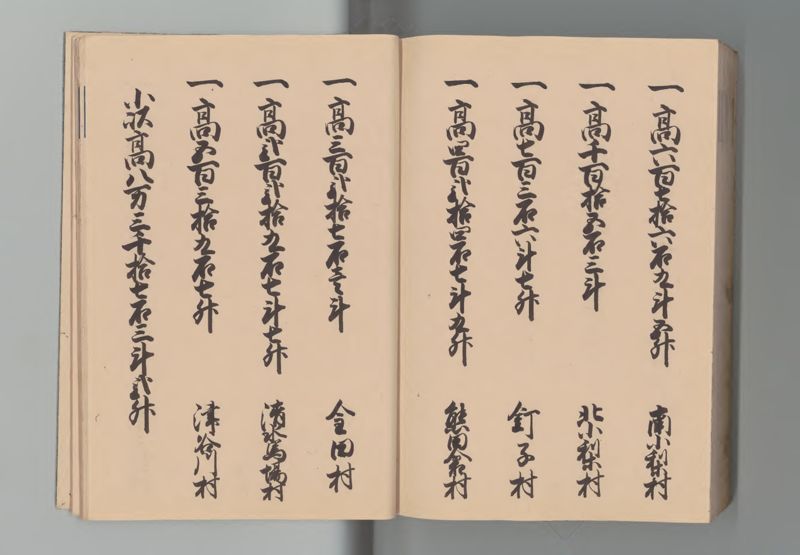 一高六百七拾六石九斗五升 南小梨村
一高千百拾五石三斗 北小梨村
一高七百三石六斗七升 釘子村
一高四百弐拾四石七斗九升 熊田倉村
一高三百弐拾七石壱斗 金田村
一高弐百弐拾九石七斗七升 清水馬場村
一高五百三拾九石七升 津谷川村
小以高八万三千拾七石三斗弐升